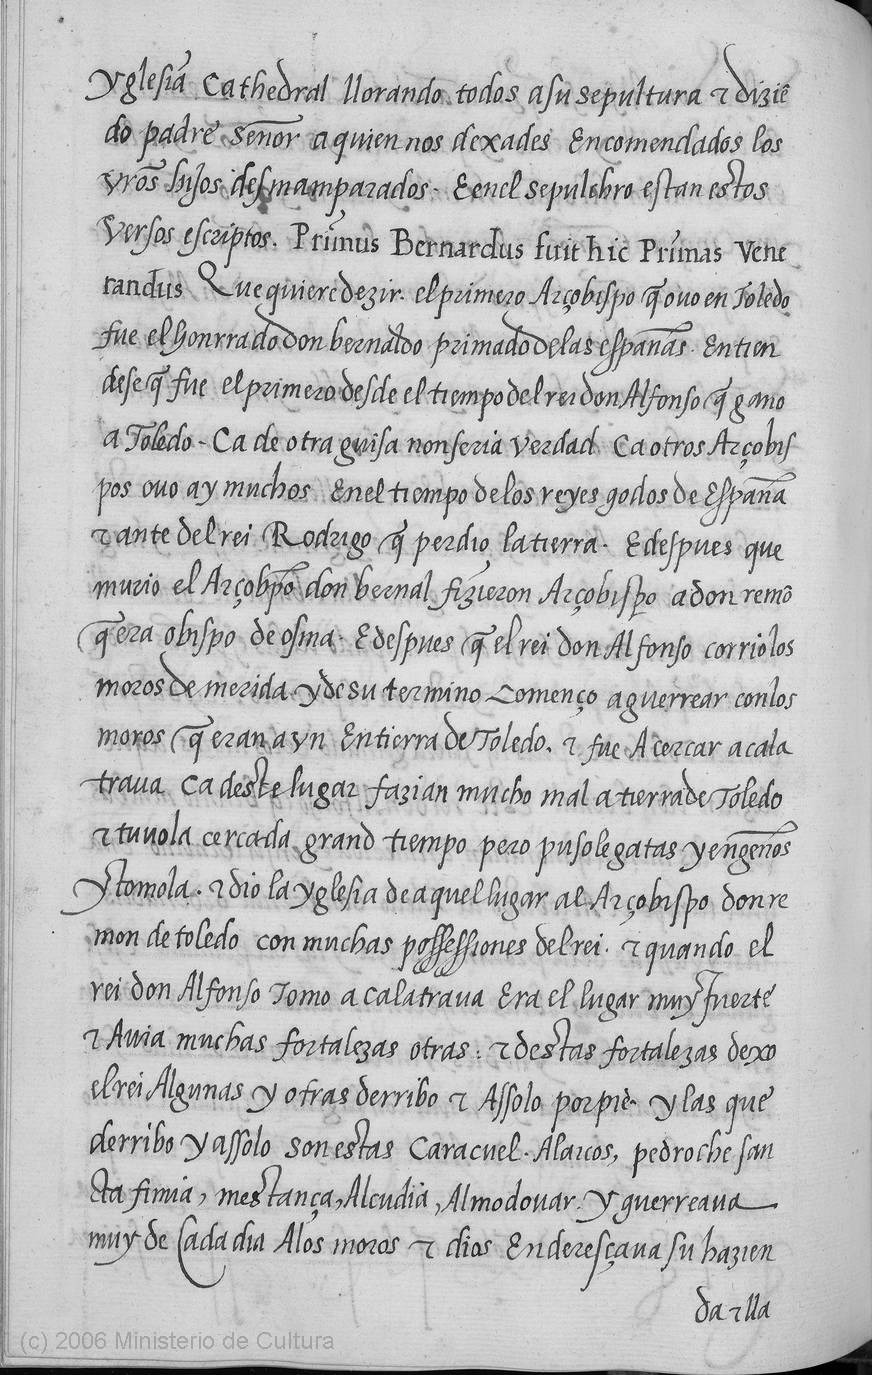 yglesia Cathedral llorando todos a su sepultura τ diziẽ
do padre señor a quien nos dexades Encomendados los
vr̃os hijos desmamparados. E en el sepulchro estan estos
versos escriptos. Prĩmus Bernardus fuit hic Prĩmas Vene
randus Que quiere dezir. el primero Arçobispo q̃ ouo en Toledo
fue el honrrado don bernaldo primado de las españas. Entien
dese q̃ fue el primero desde el tiempo del rei don Alfonso q̃ gano
a Toledo - Ca de otra guisa non seria verdad Ca otros Arçobis
pos ouo ay muchos En el tiempo de los reyes godos de España
τ ante del rei Rodrigo q̃ perdio la tierra. E despues que
murio el Arçobp̃o don bernal fizieron Arçobispo a don remõ
q̃ era obispo de osma. E despues q̃ el rei don Alfonso corrio los
moros de merida y de su termino Començo a guerrear con los
moros q̃ eran a vn En tierra de Toledo. τ fue A cercar a cala
traua Ca deste lugar fazian mucho mal a tierra de Toledo
τ tuuola cercada grand tiempo pero pusole gatas y engeños
y tomola. τ dio la yglesia de aquel lugar al Arçobispo don re
mon de toledo con muchas possessiones del rei. τ quando el
rei don Alfonso Tomo a calatraua Era el lugar muy fuerte
τ Auia muchas fortalezas otras: τ destas fortalezas dexo
el rei Algunas y otras derribo τ Assolo por pie. y las que
derribo y assolo son estas Caracuel. Alarcos, pedroche san
cta fimia, mestança, Alcudia, Almodouar. y guerreaua
muy de Cada dia Alos moros τ dios Enderesçaua su hazien
da τ lla
(c) 2006 Ministerio de Cultura